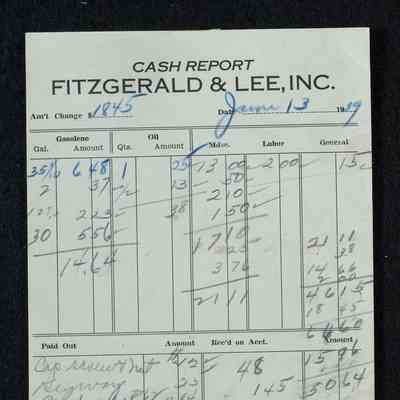 CASH REPORT
FITZGERALD & LEE, INC.
Am't Change $ 1845 Date June 13 1939
Gasolene Oil Mdse. Labor General
Gal. Amount Qts. Amount
35 6 48 1 25 13 00 2 00 15
2 37 13 50
12 2 23 38 2 10
30 5 56 1 50
14 64 17 10 21 11
38
3 76 14 66
2 00
21 11 46 15
18 45
64 60
Paid Out Amount Rec'd on Acct. Amount
Cap screw & nut 12 48 15 96
23 145 50 64